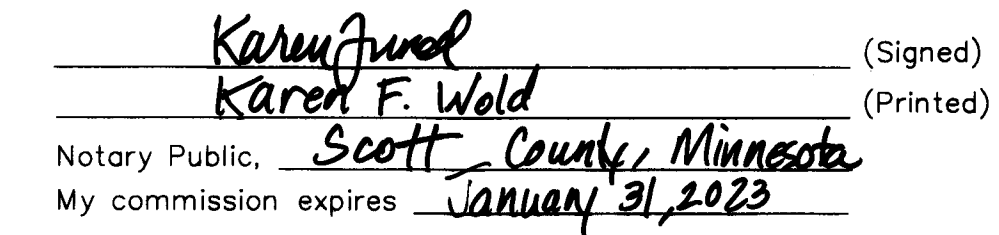 Karen (Signed)
Karen F. Wold (Printed)
Notary Public, Scott County, Minnesota
My commission expires January 31, 2023